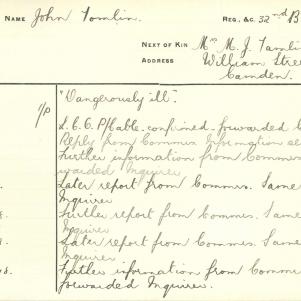 NAME John Tomlin REG., &C. 32nd B
NEXT OF KIN Mrs M. J. Tomlin
ADDRESS William Stree
Camden.
1/P "Dangerously ill".
Cable. confirmed. Forwarded
Reply from Commrs Information
Further information from Commrs
warded Inquirer
Later report from Commrs. Same
Inquirer
Further report from Commrs. Same
Inquirer
Later report from Commrs. Same
Inquirer
Further information from Comm
Forwarded Inquirer.